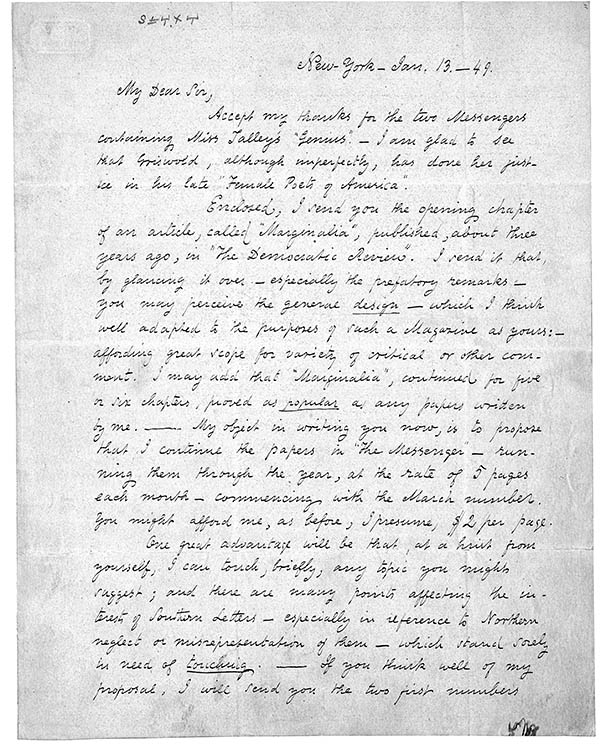 New-York – Jan. 13. – 49.
My Dear Sir,
Accept my thanks for the two Messengers
containing Miss Talley's "Genius". – I am glad to see
that Griswold, although imperfectly, has done her just-
ice in his late "Female Poets of America".
Enclosed, I send you the opening chapter
of an article, called "Marginalia", published, about three
years ago, in "The Democratic Review". I send it that,
by glancing it over – especially the prefatory remarks –
you may perceive the general design – which I think
well adapted to the purposes of such a Magazine as yours: –
affording great scope for variety of critical or other com-
ment. I may add that "Marginalia", continued for five
or six chapters, proved as popular as any papers written
by me. —— My object in writing you now, is to propose
that I continue the papers in "The Messenger" – run-
ning them through the year, at the rate of 5 pages
each month – commencing with the March number.
You might afford me, as before, I presume, $2 per page.
One great advantage will be that, at a hint from
yourself, I can touch, briefly, any topic you might
suggest; and there are many points affecting the in-
terests of Southern Letters – especially in reference to Northern
neglect or misrepresentation of them – which stand sorely
in need of touching. —— If you think well of my
proposal, I will send you the two first numbers